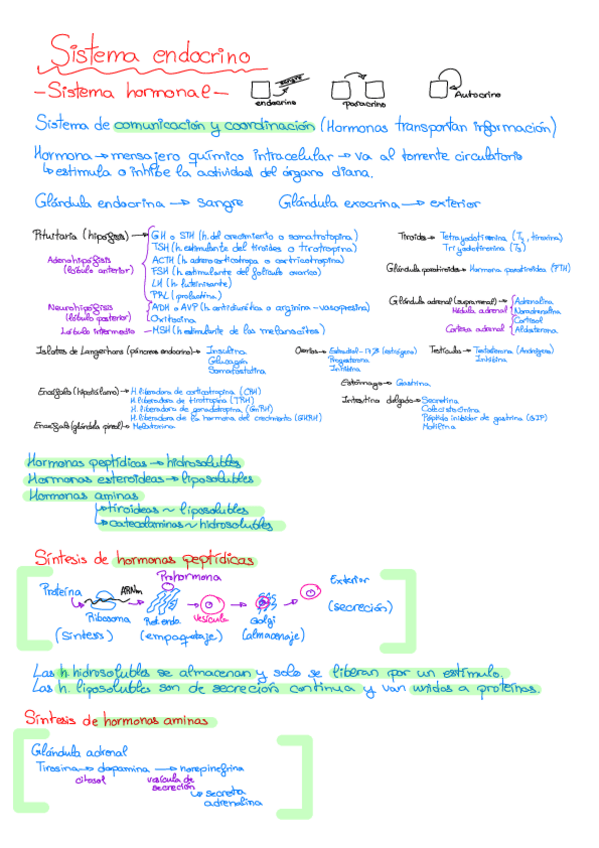 Sistema endocrino
- Sistema hormonal -
sangre
endocrino
paracrino
Autocrino
Sistema de comunicación y coordinación (Hormonas transportan información)
Hormona → mensajero químico intracelular → va al torrente circulatorio
↳ estimula o inhibe la actividad del órgano diana.
Glándula endocrina → sangre
Glándula exocrina → exterior
Pituitaria (hipófisis) →
Adenohipófisis
(lóbulo anterior)
GH o STH (h. del crecimiento o somatotropina)
TSH (h. estimulante del tiroides o tirotropina)
ACTH (h. adrenocorticotropa o corticotropina)
FSH (h. estimulante del folículo ovárico)
LH (luteinizante)
PRL (prolactina)
Neurohipófisis
(lóbulo posterior)
ADH o AVP (h. antidiurética o arginina-vasopresina)
Oxitocina
Lóbulo intermedio → MSH (h. estimulante de los melanocitos)
Tiroides → Tetrayodotironina (T4, tiroxina)
Triyodotironina (T3)
Glándula paratiroides → Hormona paratiroidea (PTH)
Glándula adrenal (suprarrenal) →
Médula adrenal
Adrenalina
Noradrenalina
Corteza adrenal
Cortisol
Aldosterona
Islotes de Langerhans (páncreas endocrino) → Insulina
Glucagón
Somatostatina
Ovarios → Estradiol-17β (estrógeno)
Progesterona
Inhibina
Testículos → Testosterona (Andrógeno)
Inhibina
Estómago → Gastrina
Encéfalo (hipotálamo) → H. liberadora de corticotropina (CRH)
H. liberadora de tirotropina (TRH)
H. liberadora de gonadotropina (GnRH)
H. liberadora de la hormona del crecimiento (GHRH)
Encéfalo (glándula pineal) → Melatonina
Intestino delgado → Secretina
Colecistocinina
Péptido inhibidor de gastrina (GIP)
Motilina
Hormonas peptídicas → hidrosolubles
Hormonas esteroideas → liposolubles
Hormonas aminas
↳ tiroideas ~ liposolubles
↳ catecolaminas ~ hidrosolubles
Síntesis de hormonas peptídicas
Proteína
ARNm
Prohormona
Exterior
Ribosoma
Vesícula
Golgi
(secreción)
(síntesis)
(empaquetaje)
(almacenaje)
Las h. hidrosolubles se almacenan y solo se liberan por un estímulo.
Las h. liposolubles son de secreción continua y van unidas a proteínas.
Síntesis de hormonas aminas
Glándula adrenal
Tirosina → dopamina → norepinefrina
citosol
vesícula de
secreción
↳ secreta
adrenalina